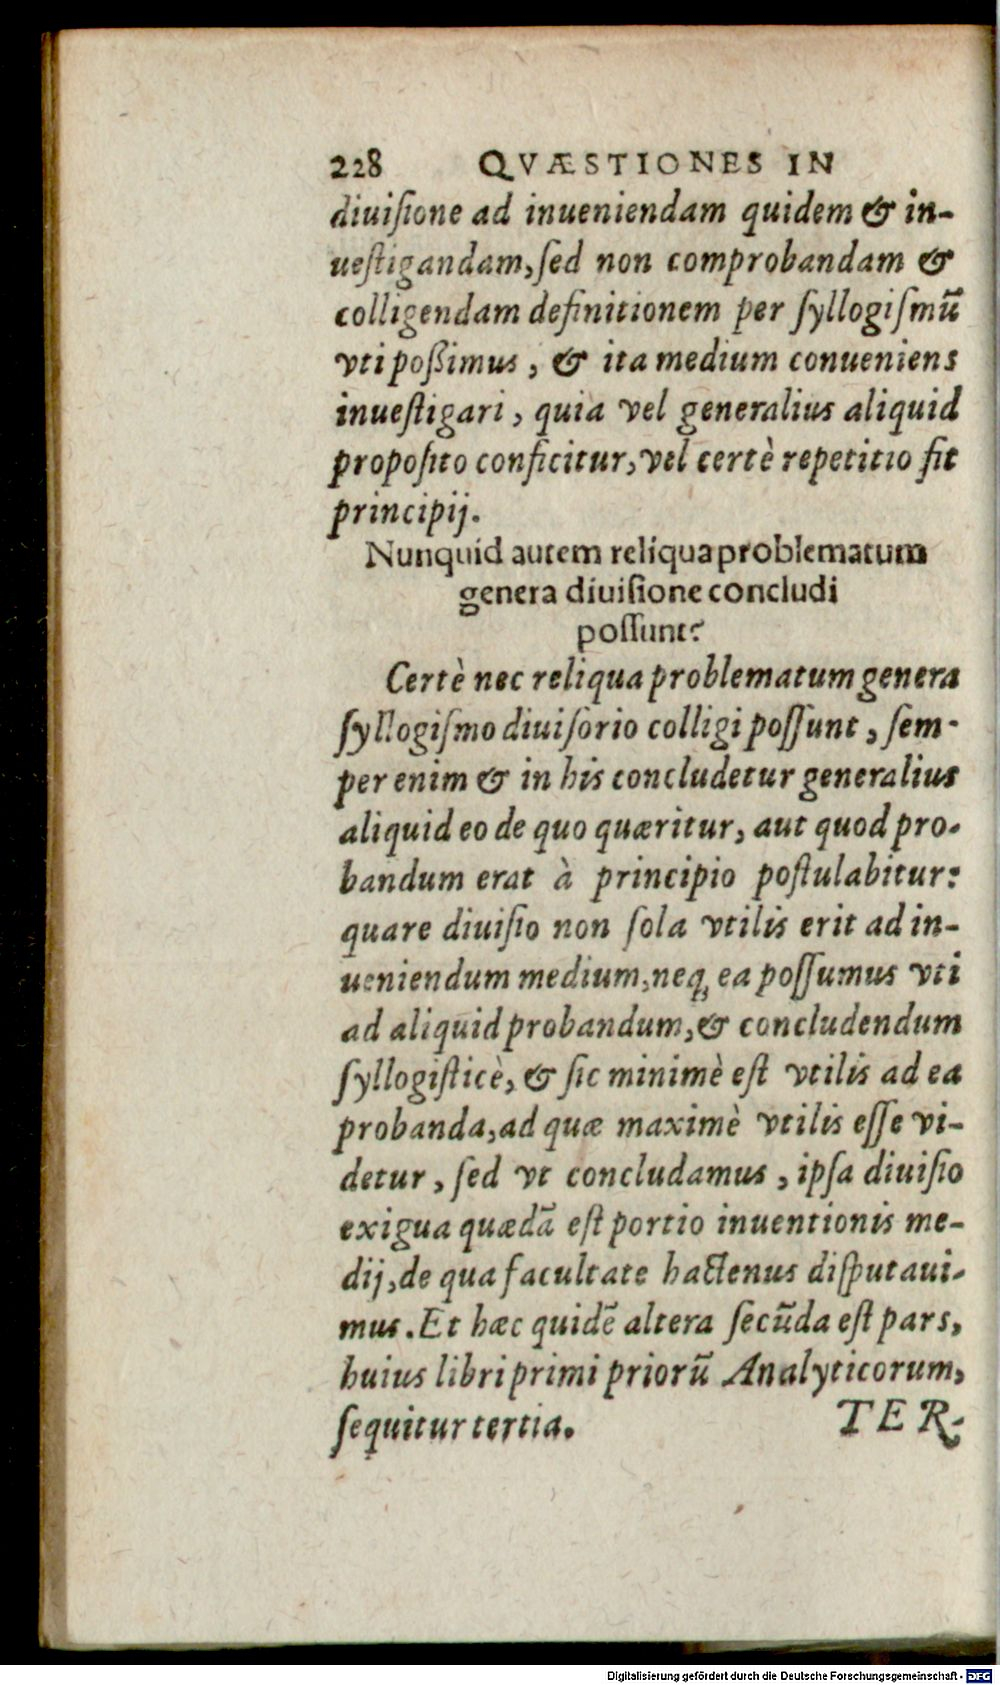 228 QVÆSTIONES IN
diuiſione ad inueniendam quidem & in-
ueſtigandam, ſed non comprobandam &
colligendam definitionem per ſyllogiſmū
vti poßimus, & ita medium conueniens
inueſtigari, quia vel generalius aliquid
propoſito conficitur, vel certè repetitio fit
principij.
Nunquid autem reliqua problematum
genera diuiſione concludi
poſſunt?
Certè nec reliqua problematum genera
ſyllogiſmo diuiſorio colligi poſſunt, ſem-
per enim & in his concludetur generalius
aliquid eo de quo quæritur, aut quod pro-
bandum erat à principio poſtulabitur:
quare diuiſio non ſola vtilis erit ad in-
ueniendum medium, neq; ea poſſumus vti
ad aliquid probandum, & concludendum
ſyllogiſticè, & ſic minimè eſt vtilis ad ea
probanda, ad quæ maximè vtilis eſſe vi-
detur, ſed vt concludamus, ipſa diuiſio
exigua quædā eſt portio inuentionis me-
dij, de qua facultate hactenus diſputaui-
mus. Et hæc quidē altera ſecūda eſt pars,
huius libri primi priorū Analyticorum,
ſequitur tertia. TER-
Digitalisierung gefördert durch die Deutsche Forschungsgemeinschaft - DFG